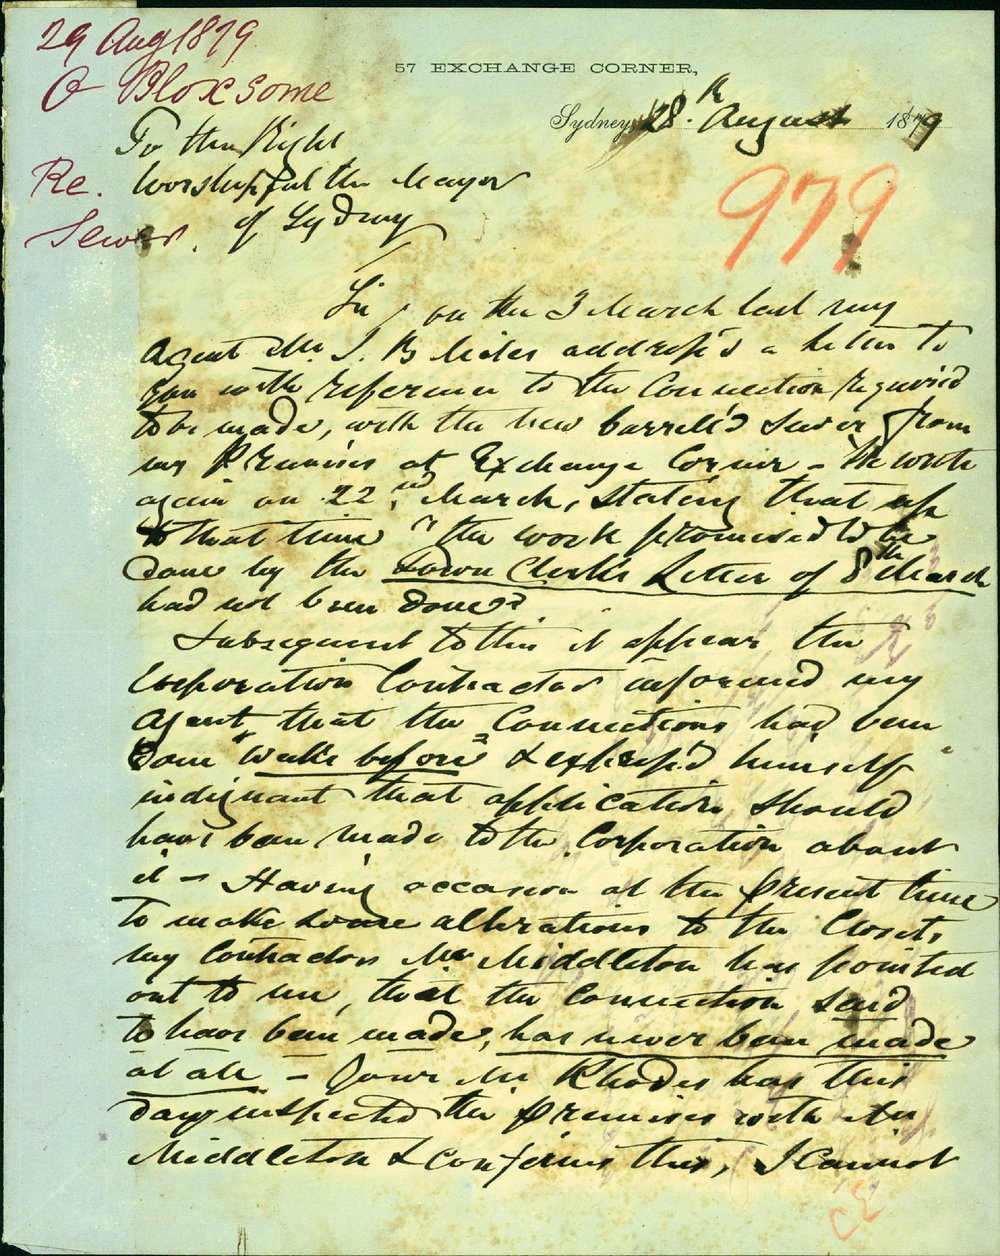 29 Aug 1879
O Bloxsome
Re.
Sewer.
57 EXCHANGE CORNER,
Sydney, 28th August 1879
979
To the Right
Worshipful the Mayor
of Sydney
Sir, on the 3 March last my
Agent Mr. J. B Miles address'd a letter to
you with reference to the Connection required
to be made, with the new barrell'd Sewer from
my Premises at Exchange Corner – He wrote
again on 22nd March, stating that up
to that time "the work promised to be
done by the Town Clerk's Letter of 8th March
had not been done"
Subsequent to this it appears the
Corporation Contractor informed my
Agent that the Connections had been
done "weeks before" & express'd himself
indignant that application should
have been made to the Corporation about
it – Having occasion at the present time
to make some alterations to the Closets,
my Contractor Mr Middleton has pointed
out to me, that the Connection said
to have been made, has never been made
at all – Your Mr Rhodes has this
day inspected the premises with Mr
Middleton & confirms this, I cannot